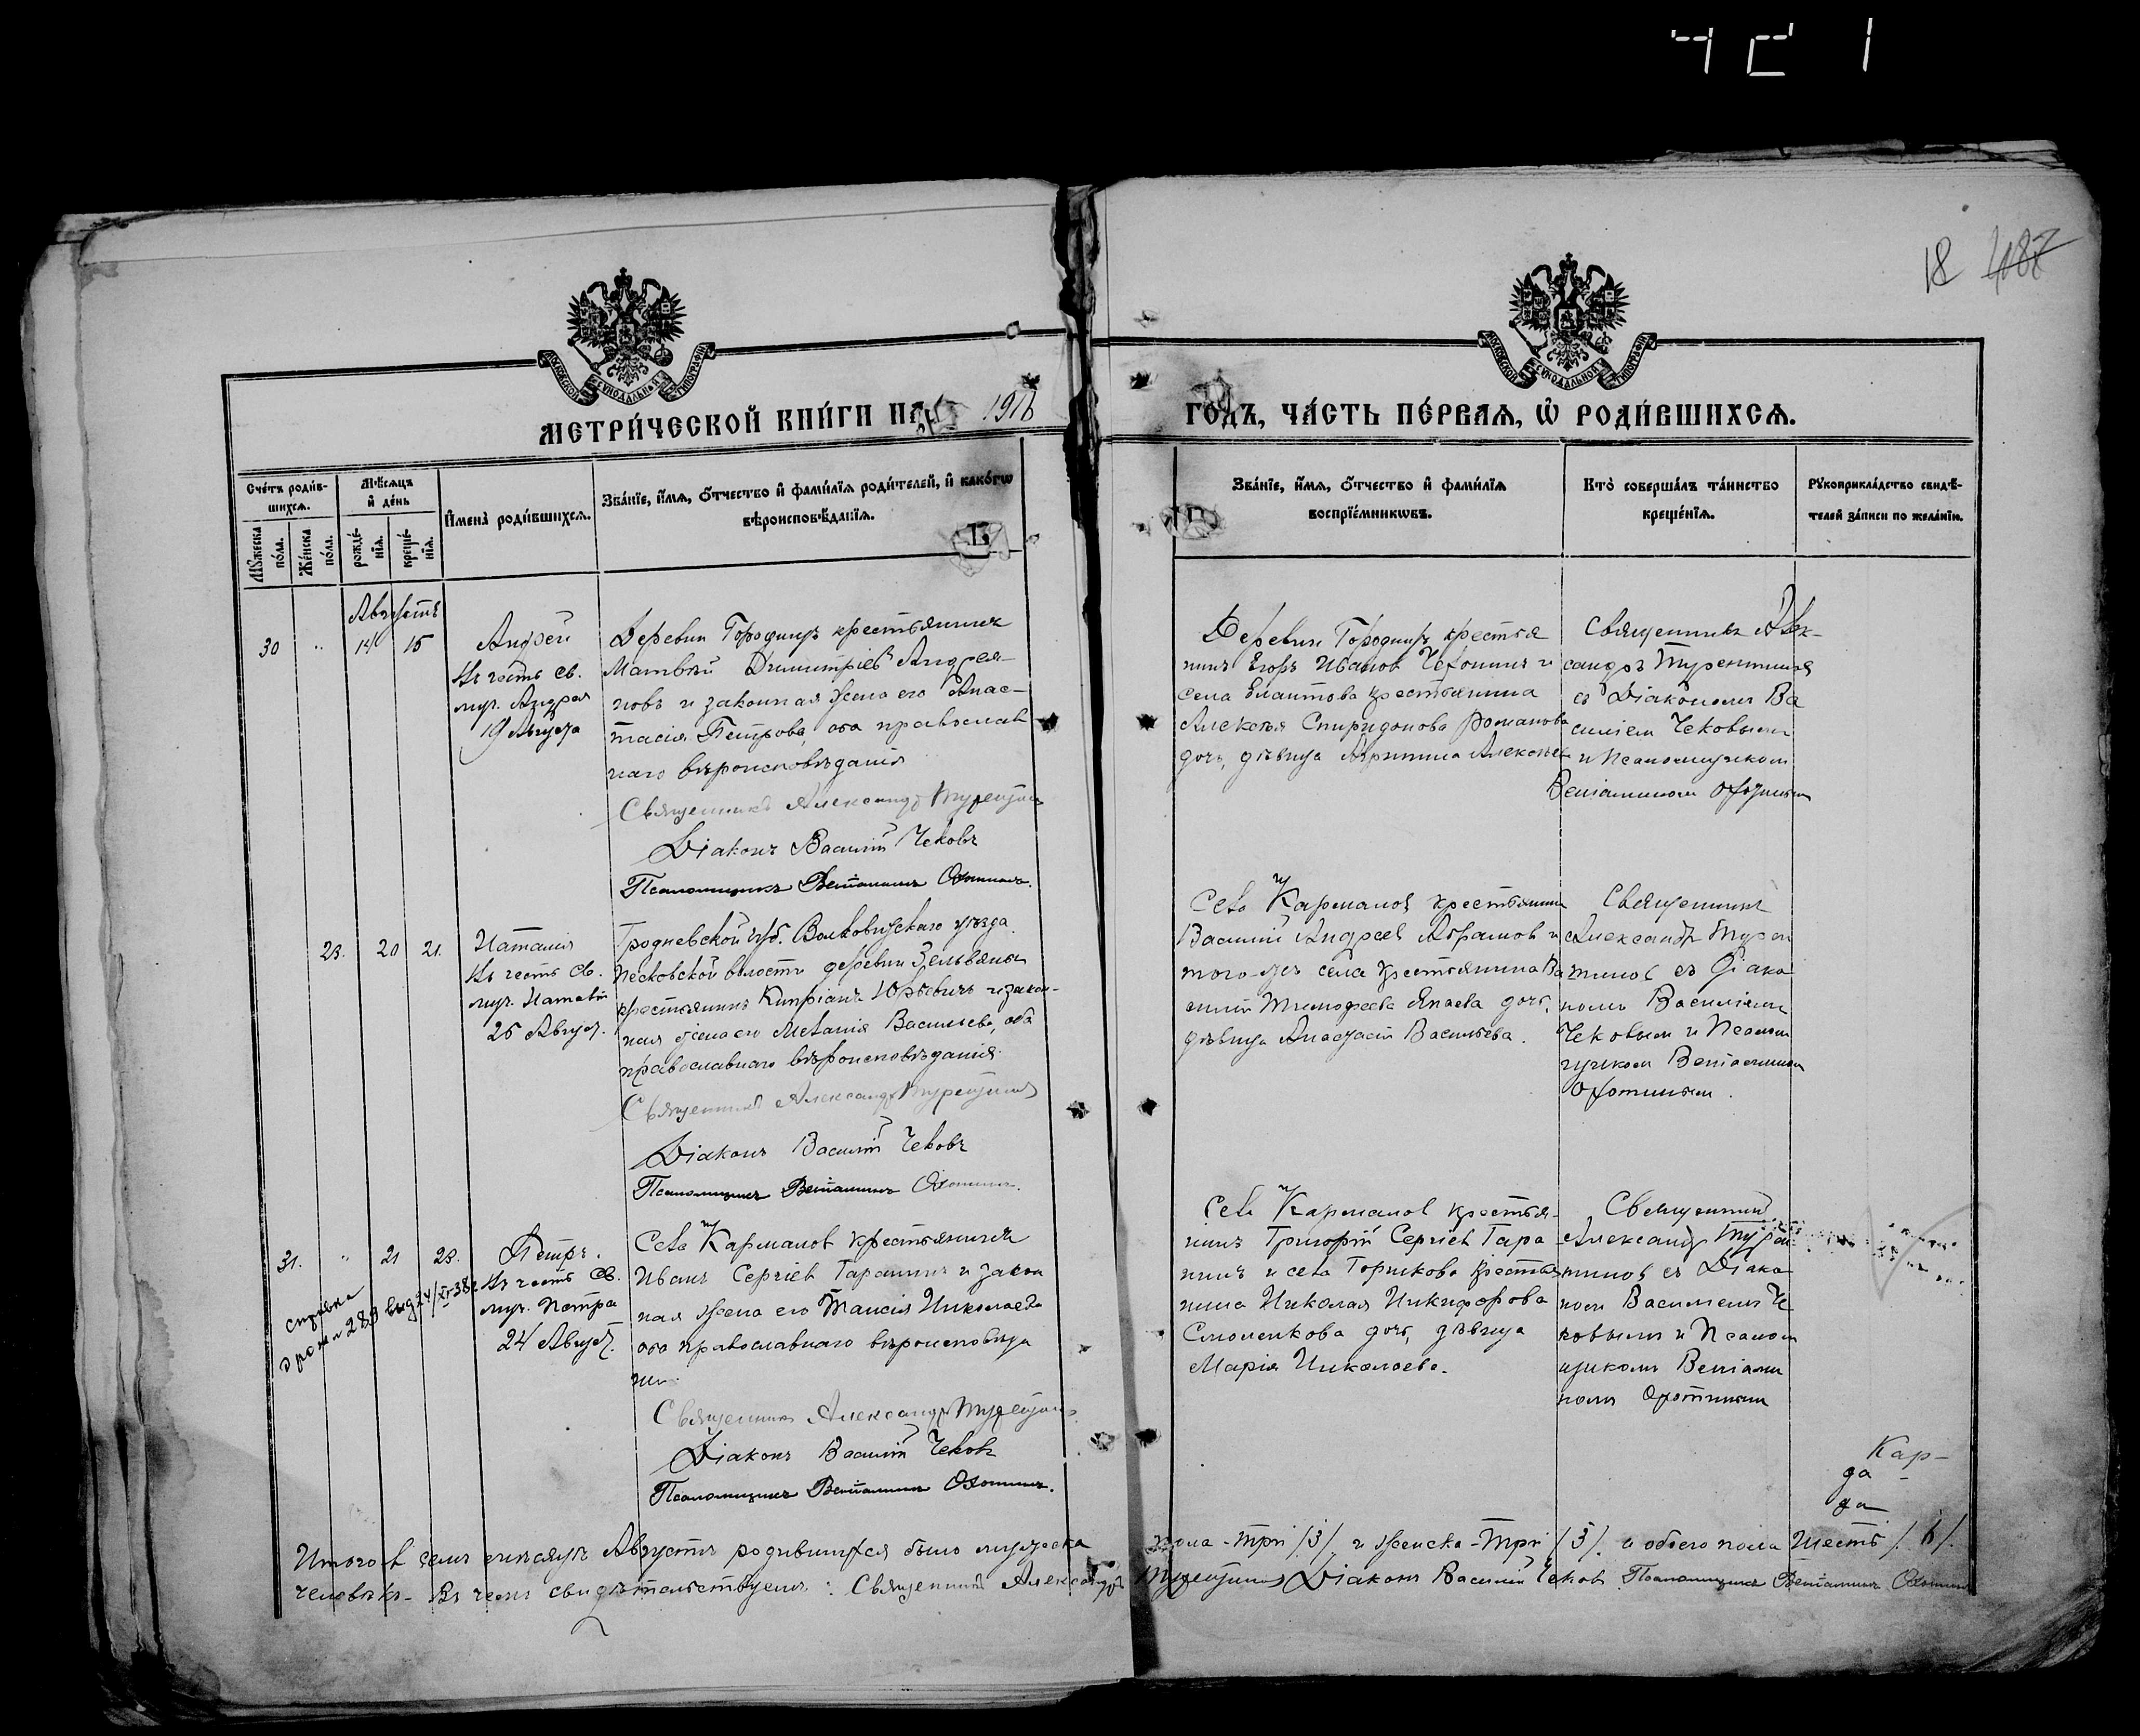 18 487
МОСКОВСКОЙ СУНОДАЛЬНОЙ ТИПОГРАФІИ
МОСКОВСКОЙ СУНОДАЛЬНОЙ ТИПОГРАФІИ
МЕТРИ́ЧЕСКОЙ КНИ́ГИ НА 1916
ГОДЪ, ЧА́СТЬ ПЕ́РВАЯ, Ѡ РОДИ́ВШИХСЯ.
Сче́тъ роди́в-
шихся.
Мꙋжеска по́ла.
Же́нска по́ла.
Мѣ́сяцъ
и де́нь
рожде́-
нїя.
креще́-
нїя.
Имена̀ роди́вшихся.
Зва́нїе, и́мя, о́тчество и фами́лїя роди́телей, и како́гѡ
вѣроисповѣ́данїя.
Зва́нїе, и́мя, о́тчество и фами́лїя
воспрїе́мникѡвъ.
Кто̀ соверша́лъ та́инство
креще́нїя.
Рꙋкоприкла́дство свидѣ́-
телей за́писи по жела́нїю.
Августъ
30 " 14 15
Андрей
Въ честь св.
муч. Андрея
19 Августа
Деревни Городищъ крестьянинъ
Матвѣй Димитріевъ Андрея-
новъ и законная жена его Анас-
тасія Петрова, оба православ
наго вѣроисповѣданія
Священникъ Александръ
Діаконъ Василій Чековъ
Псаломщикъ Веніаминъ Охотинъ.
Деревни Городищъ крестья
нинъ Егоръ Ивановъ и
села крестьянина
Алексѣя Спиридонова Романова
дочь, дѣвица Алексѣев
Священникъ Алек-
сандръ
съ Діакономъ Ва
силіемъ Чековымъ
и Псаломщикомъ
Веніаминомъ Охотинымъ
23. 20 21.
Наталія
Въ честь св.
муч. Наталіи
26 Август.
Гродненской губ. Волковыскаго уѣзда
Песковской волости деревни Зельвяны
крестьянинъ Кипріанъ Юрьевичъ и закон-
ная жена его Меланія Васильева, оба
православнаго вѣроисповѣданія.
Священникъ Александръ
Діаконъ Василій Чековъ
Псаломщикъ Веніаминъ Охотинъ.
Села Карманова крестьянинъ
Василий Андреев Абрамов и
того-же села крестьянина Ва
силия Тимофеева дочь,
дѣвица Анастасія Васильева.
Священникъ
Александръ
съ Діако
номъ Василіемъ
Чековымъ и Псалом
щикомъ Веніаминомъ
Охотинымъ.
31. " 21 23.
справка
о рожд № 289 выд 24/XI-38 г
Петръ.
Въ честь св.
муч. Петра
24 Август.
Села Карманова крестьянинъ
Иванъ Сергіевъ Гаранинъ и закон
ная жена его Таисія Николаева
оба православнаго вѣроисповѣда
нія.
Священникъ Александръ
Діаконъ Василій Чековъ
Псаломщикъ Веніаминъ Охотинъ.
Села Карманова крестья-
нинъ Григорій Сергіевъ Гара
нинъ и села Горшкова крестья
нина Николая Никифорова
Смоленкова дочь, дѣвица
Марія Николаева.
Священникъ
Александръ
съ Діако
номъ Василіемъ Че
ковымъ и Псалом
щикомъ Веніами
номъ Охотинымъ
Кар-
да
да
Итого в семъ мѣсяцѣ Августѣ родившихся было мужеска пола - три /3/. и женска - три /3/. и обоего пола шесть /6/.
человѣкъ. Въ чемъ свидѣтельствуемъ: Священникъ Александръ Діаконъ Василій Чековъ Псаломщикъ Веніаминъ Охотинъ